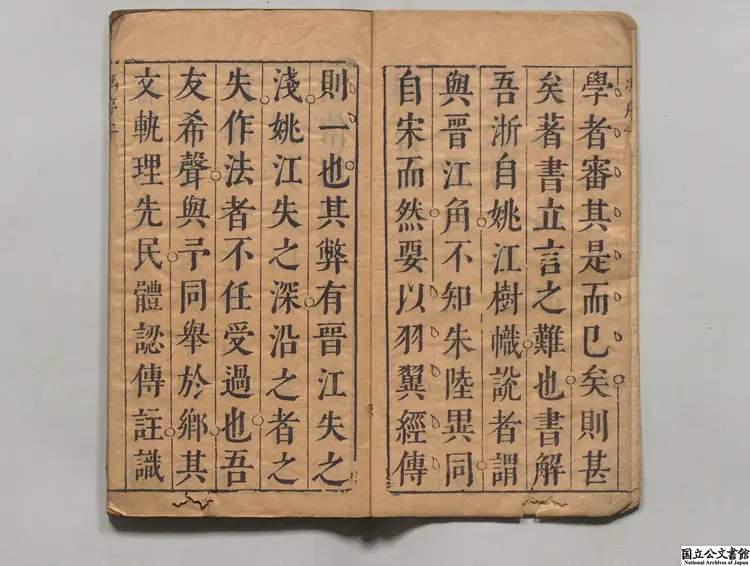 學者審其是而已矣則甚
矣著書立言之難也書解
吾浙自姚江樹幟說者謂
與晉江角不知朱陸異同
自宋而然要以羽翼經傳
則一也其弊有晉江失之
淺姚江失之深沿之者之
失作法者不任受過也吾
友希聲與予同舉於鄉其
文軌理先民體認傳註識
国立公文書館
National Archives of Japan